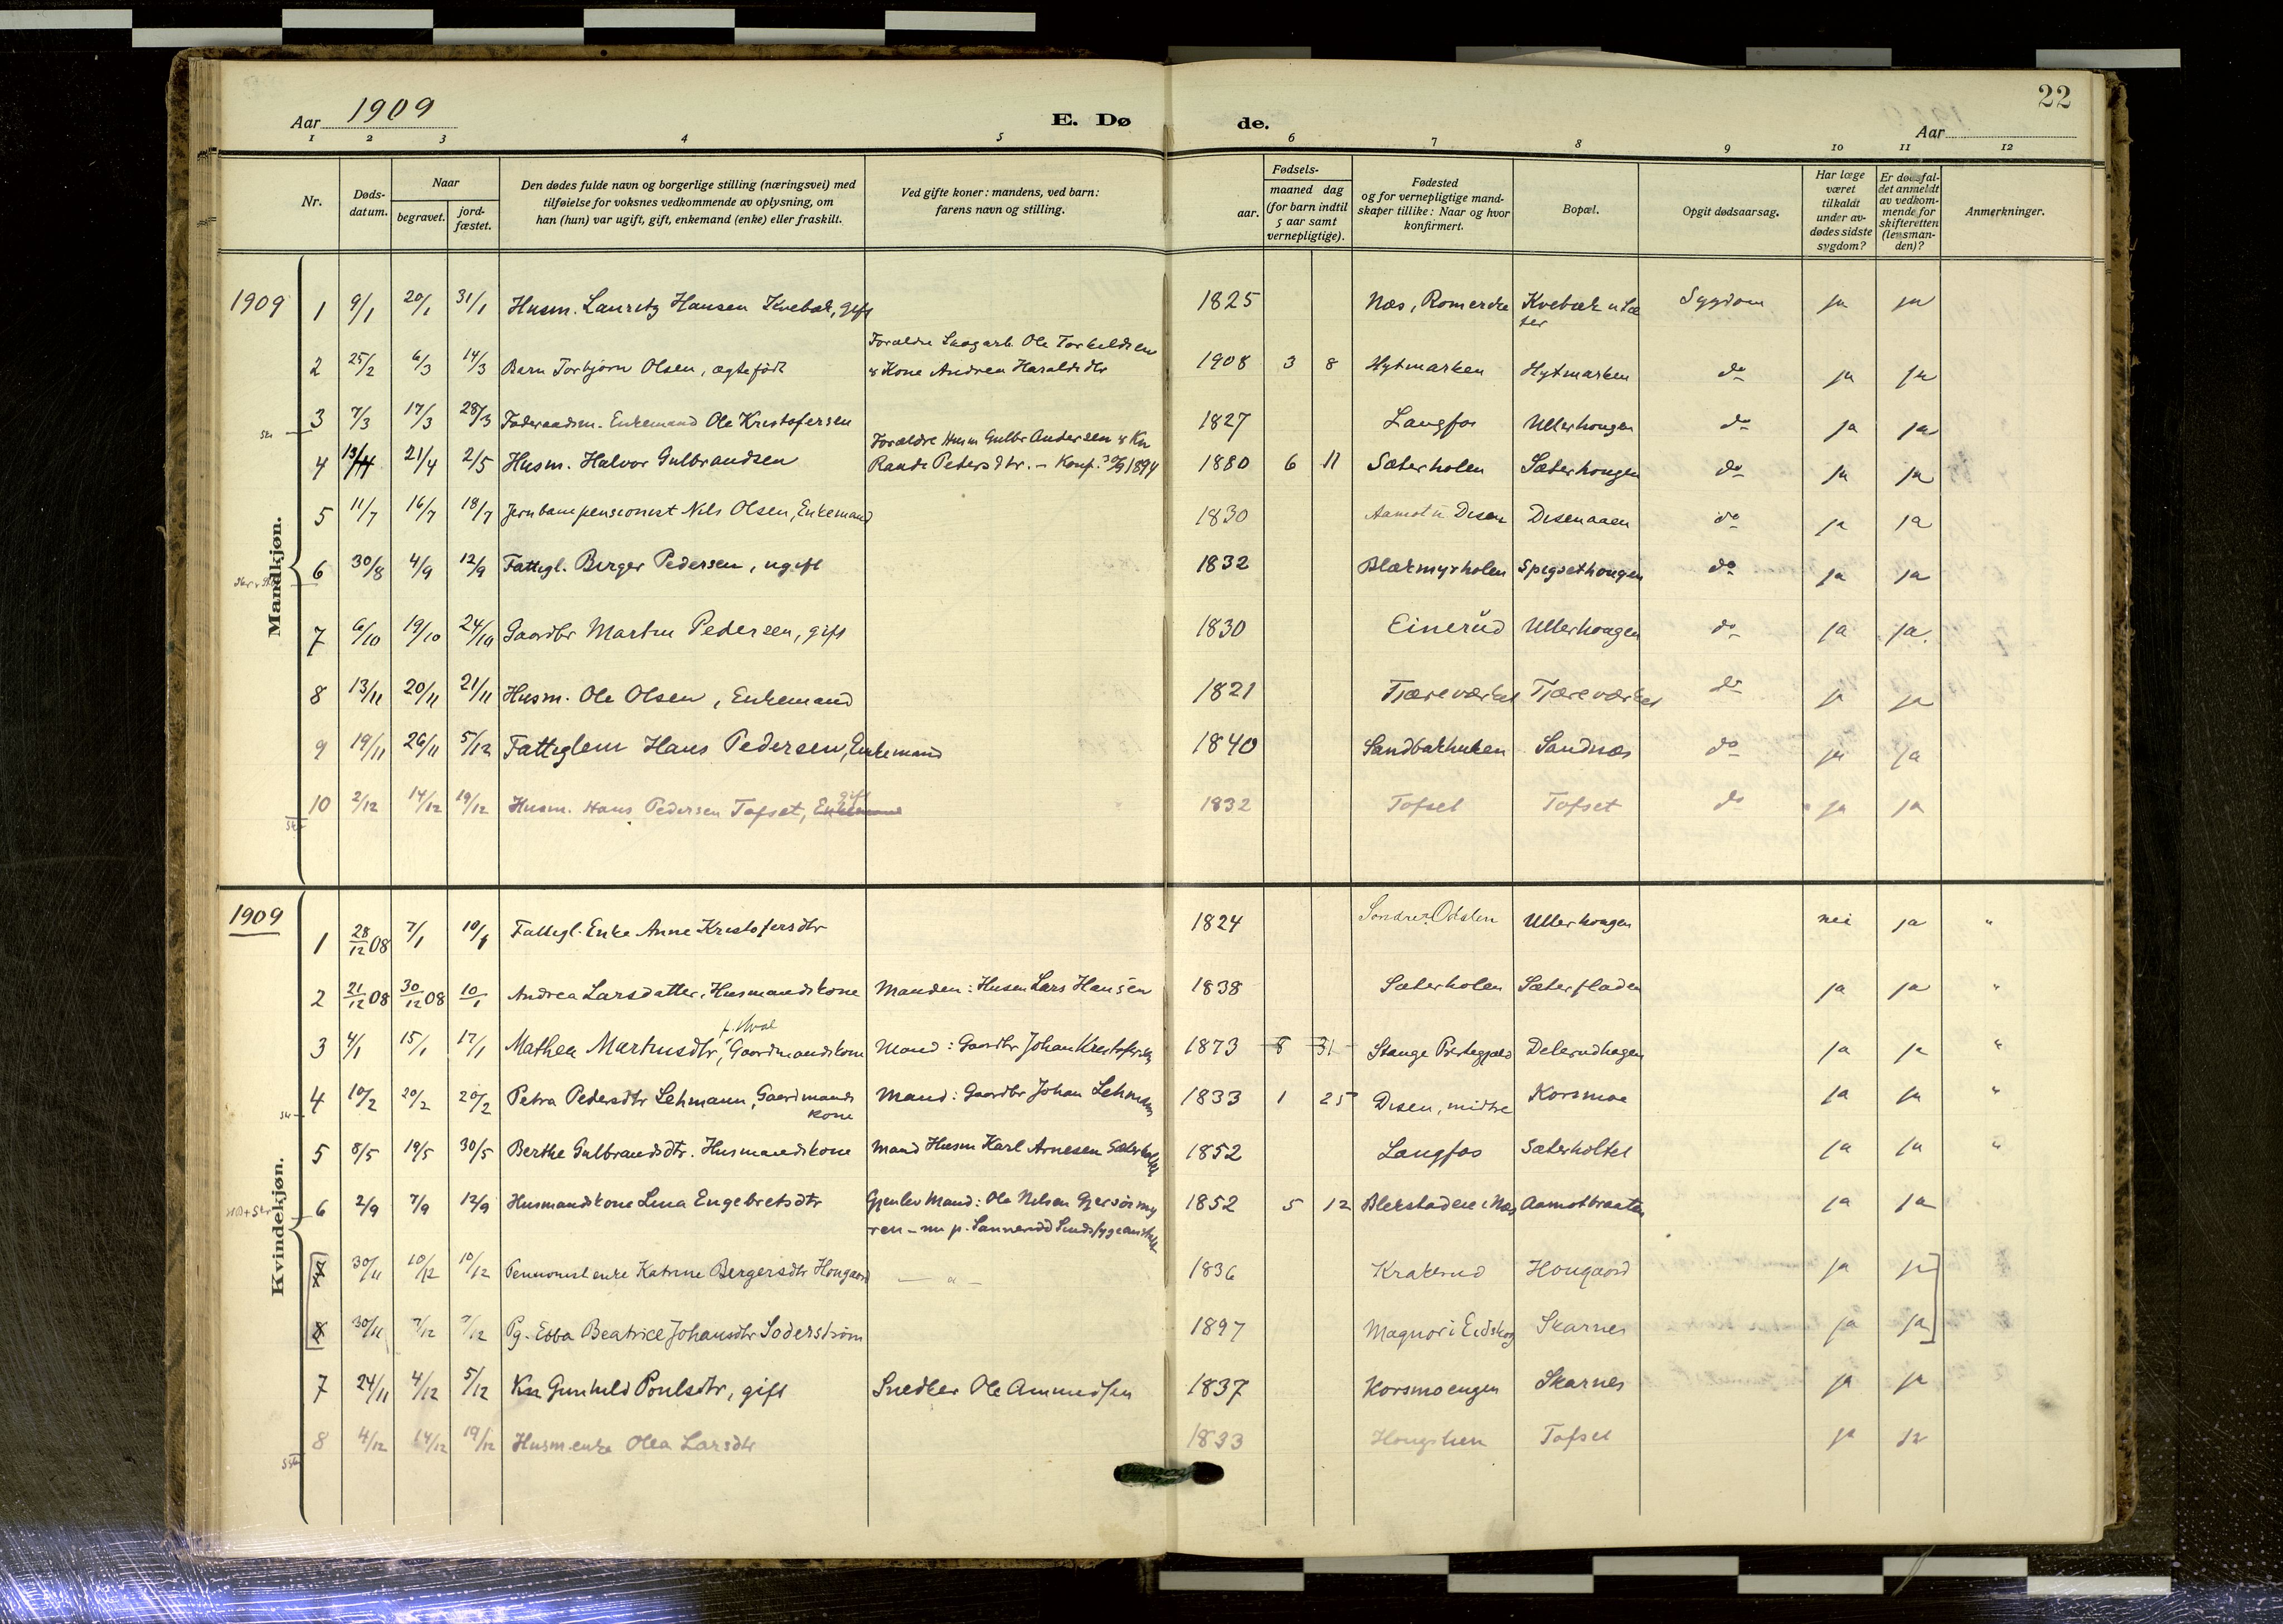 Aar 1909 E. Dø de. 22 Aar
1 2 3 4 5 6 7 8 9 10 11 12
Nr. Døds-datum. Naar begravet. jord-fæstet. Den dødes fulde navn og borgerlige stilling (næringsvei) med tilføielse for voksnes vedkommende av oplysning, om han (hun) var ugift, gift, enkemand (enke) eller fraskilt. Ved gifte koner: mandens, ved barn: farens navn og stilling. Fødsels- aar. maaned dag (for barn indtil 5 aar samt vernepligtige). Fødested og for vernepligtige mand-skaper tillike: Naar og hvor konfirmert. Bopæl. Opgit dødsaarsag. Har læge været tilkaldt under av-dødes sidste sygdom? Er dødsfal-det anmeldt av vedkom-mende for skifteretten (lensman-den)? Anmerkninger.
Mandkjøn.
1909 1 9/1 20/1 31/1 Husm. Lauritz Hansen Kvebæk, gift 1825 Næs, Romerike Kvebæk u Sæ ter Sygdom ja ja
2 25/2 6/3 14/3 Barn Torbjørn Olsen, ægtefødt Forældre Skogarb. Ole Torkeldsen
& Kone Andrea Haraldsdtr 1908 3 8 Hytmarken Hytmarken do ja ja
3 7/3 17/3 28/3 Føderaadsm. Enkemand Ole Kristofersen 1827 Langfos Ullerhougen do ja ja
4 13/4 21/4 2/5 Husm. Halvor Gulbrandsen Forældre Husm Gulbr Andersen & Kn
Randi Pedersdtr. - Konf. 30/9 1894 1880 6 11 Sæterholen Sæterhougen do ja ja
5 11/7 16/7 18/7 Jernbanepensionist Nils Olsen, Enkemand 1830 Aamot u Disen Disenaaen do ja ja
6 30/8 4/9 12/9 Fattigl. Birger Pedersen, ugift 1832 Blækmyrholen Spigsethougen do ja ja
7 6/10 19/10 24/10 Gaardbr Martin Pedersen, gift 1830 Einerud Ullerhougen do ja ja.
8 13/11 20/11 21/11 Husm. Ole Olsen, Enkemand 1821 Tjæreværket Tjæreværket do ja ja
9 19/11 26/11 5/12 Fattiglem Hans Pedersen, Enkemand 1840 Sandbækhuken Sandnæs do ja ja
10 2/12 14/12 19/12 Husm. Hans Pedersen Tofset, Enkemand gift 1832 Tofset Tofset do ja ja
Kvindekjøn.
1909 1 28/12 08 7/1 10/1 Fattigl. Enke Anne Kristofersdtr 1824 Søndre Odalen Ullerhougen nei ja "
2 21/12 08 30/12 08 10/1 Andrea Larsdatter, Husmandskone Manden: Husm Lars Hansen 1838 Sæterholen Sæterfladen ja ja "
3 4/1 15/1 17/1 Mathea Martinsdtr, f. Hval Gaardmandskone Mand: Gaardbr Johan Kristofersen 1873 8 31 Stange Prestegjæld Delerudhagen ja ja "
4 10/2 20/2 20/2 Petra Pedersdtr Lehmann, Gaardmands kone Mand: Gaardbr Johan Lehmann 1833 1 25 Disen, midtre Korsmoe ja ja "
5 8/5 19/5 30/5 Berthe Gulbrandsdtr. Husmandskone Mand Husm Karl Arnesen Sæterholtet 1852 Langfos Sæterholtet ja ja "
6 2/9 7/9 12/9 Husmandskone Lina Engebretsdtr Gjenlev Mand: Ole Nilsen Gjersøimy
ren - nu p. Sannerud Sindssygeanstalt 1852 5 12 Blekstadeie i Næs Aamotbraaten ja ja
7 30/11 10/12 10/12 Pensionistenke Katrine Bergersdtr Hougaard — " — 1836 Krakerud Hougaard ja ja
8 30/11 7/12 7/12 Pg. Ebba Beatrice Johansdtr Søderstrøm 1897 Magnor i Eidskog Skarnes ja ja
7 24/11 4/12 5/12 Kn Gunhild Poulsdtr, gift Snedker Ole Ammundsen 1837 Korsmoengen Skarnes ja ja
8 4/12 14/12 19/12 Husm enke Olea Larsdtr 1833 Tofset ja ja